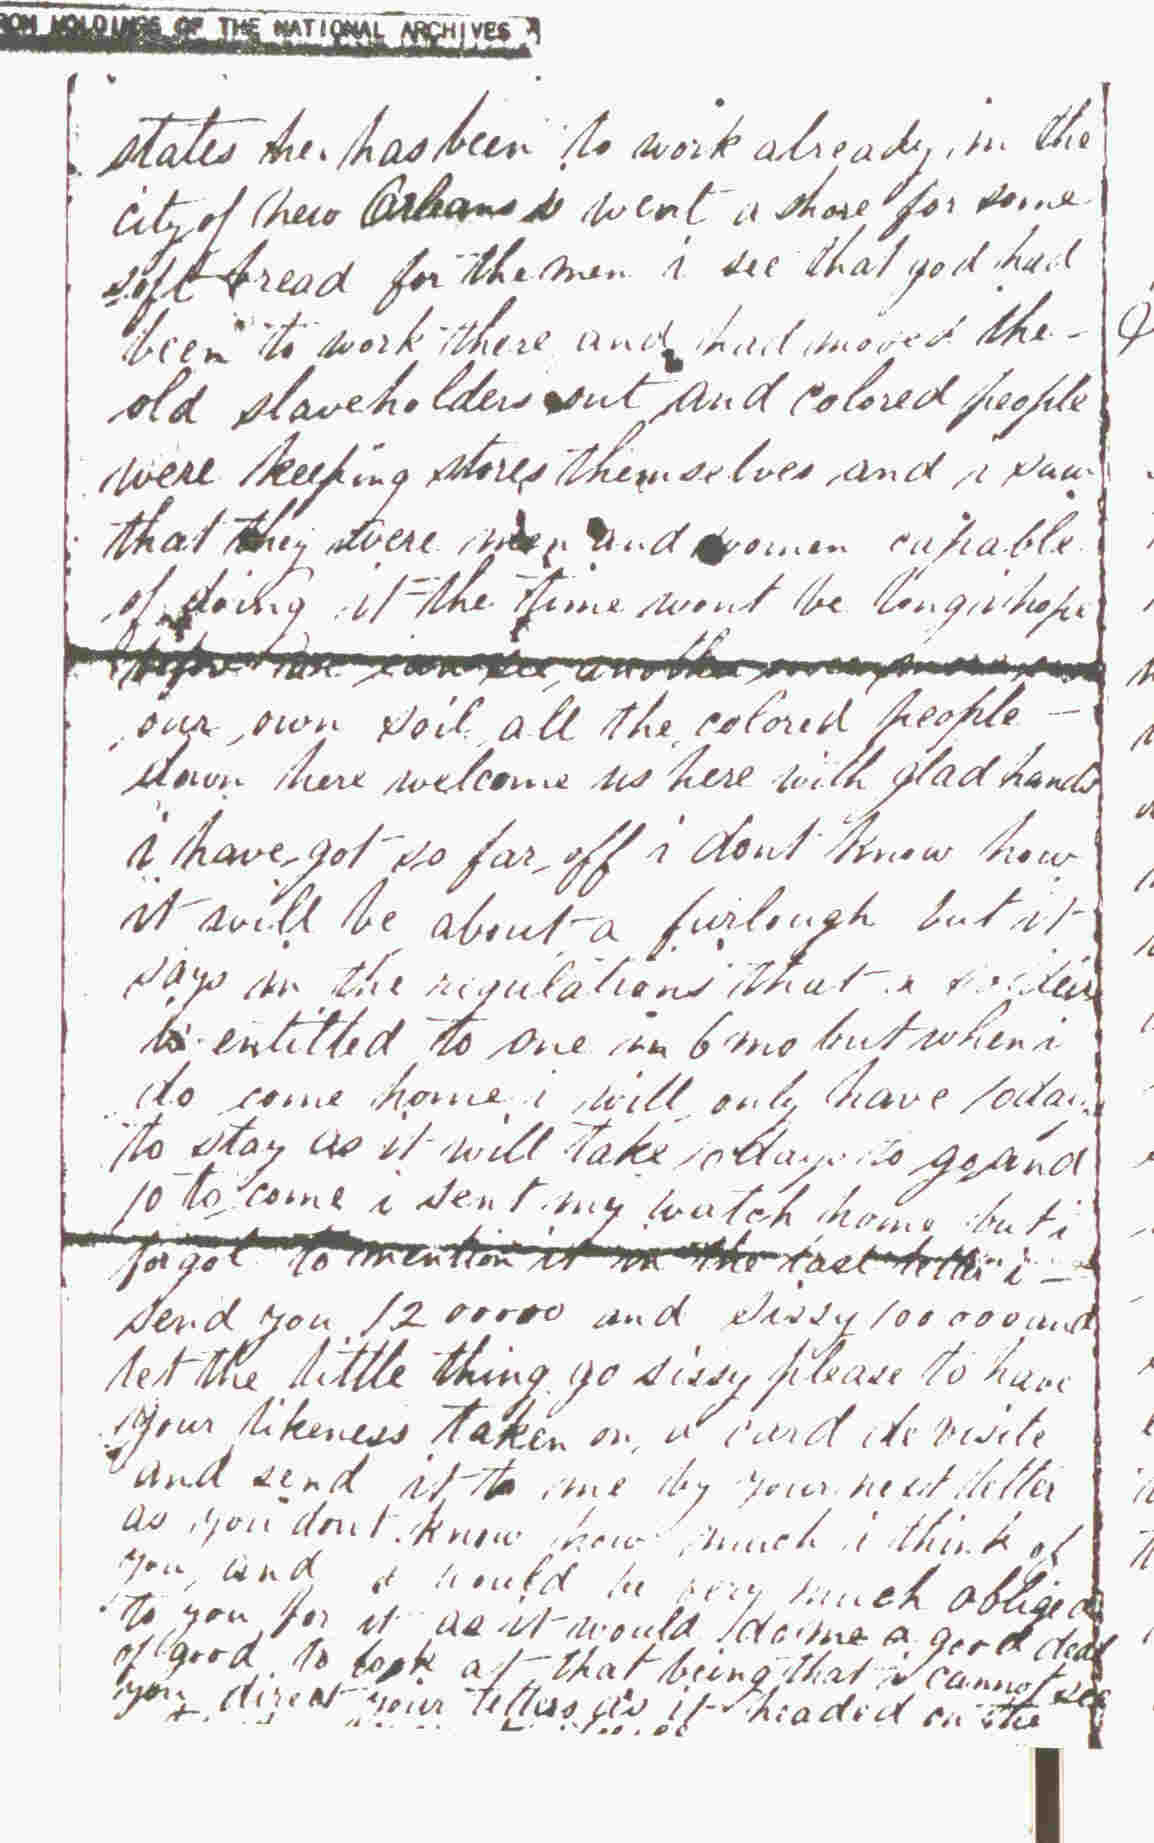 FROM HOLDINGS OF THE NATIONAL ARCHIVES
states he has been to work already in the
city of new Orleans went a shore for some
soft bread for the men i see that god had
been to work there and had moved the -
old slaveholders out and colored people
were keeping stores themselves and i saw
that they were men and women capable
of doing it the time wont be long i hope
before we can see another once more on
our own soil all the colored people -
down here welcome us here with glad hands
i have got so far off i dont know how
it will be about a furlough but it
says in the regulations that a
is entitled to one in 6 mo but when i
do come home i will only have 10 days
to stay as it will take 10 days to go and
10 to come i sent my watch home but i
forgot to mention it in the last letter i -
send you 12 00000 and sissy 100 000 and
let the little thing go sissy please to have
your likeness taken on a card de visite
and send it to me by your next letter
as you dont know how much i think of
you and i would be very much obliged
to you for it as it would do me a good deal
of good to look at that being that i cannot see
you direct your letters as it headed on the